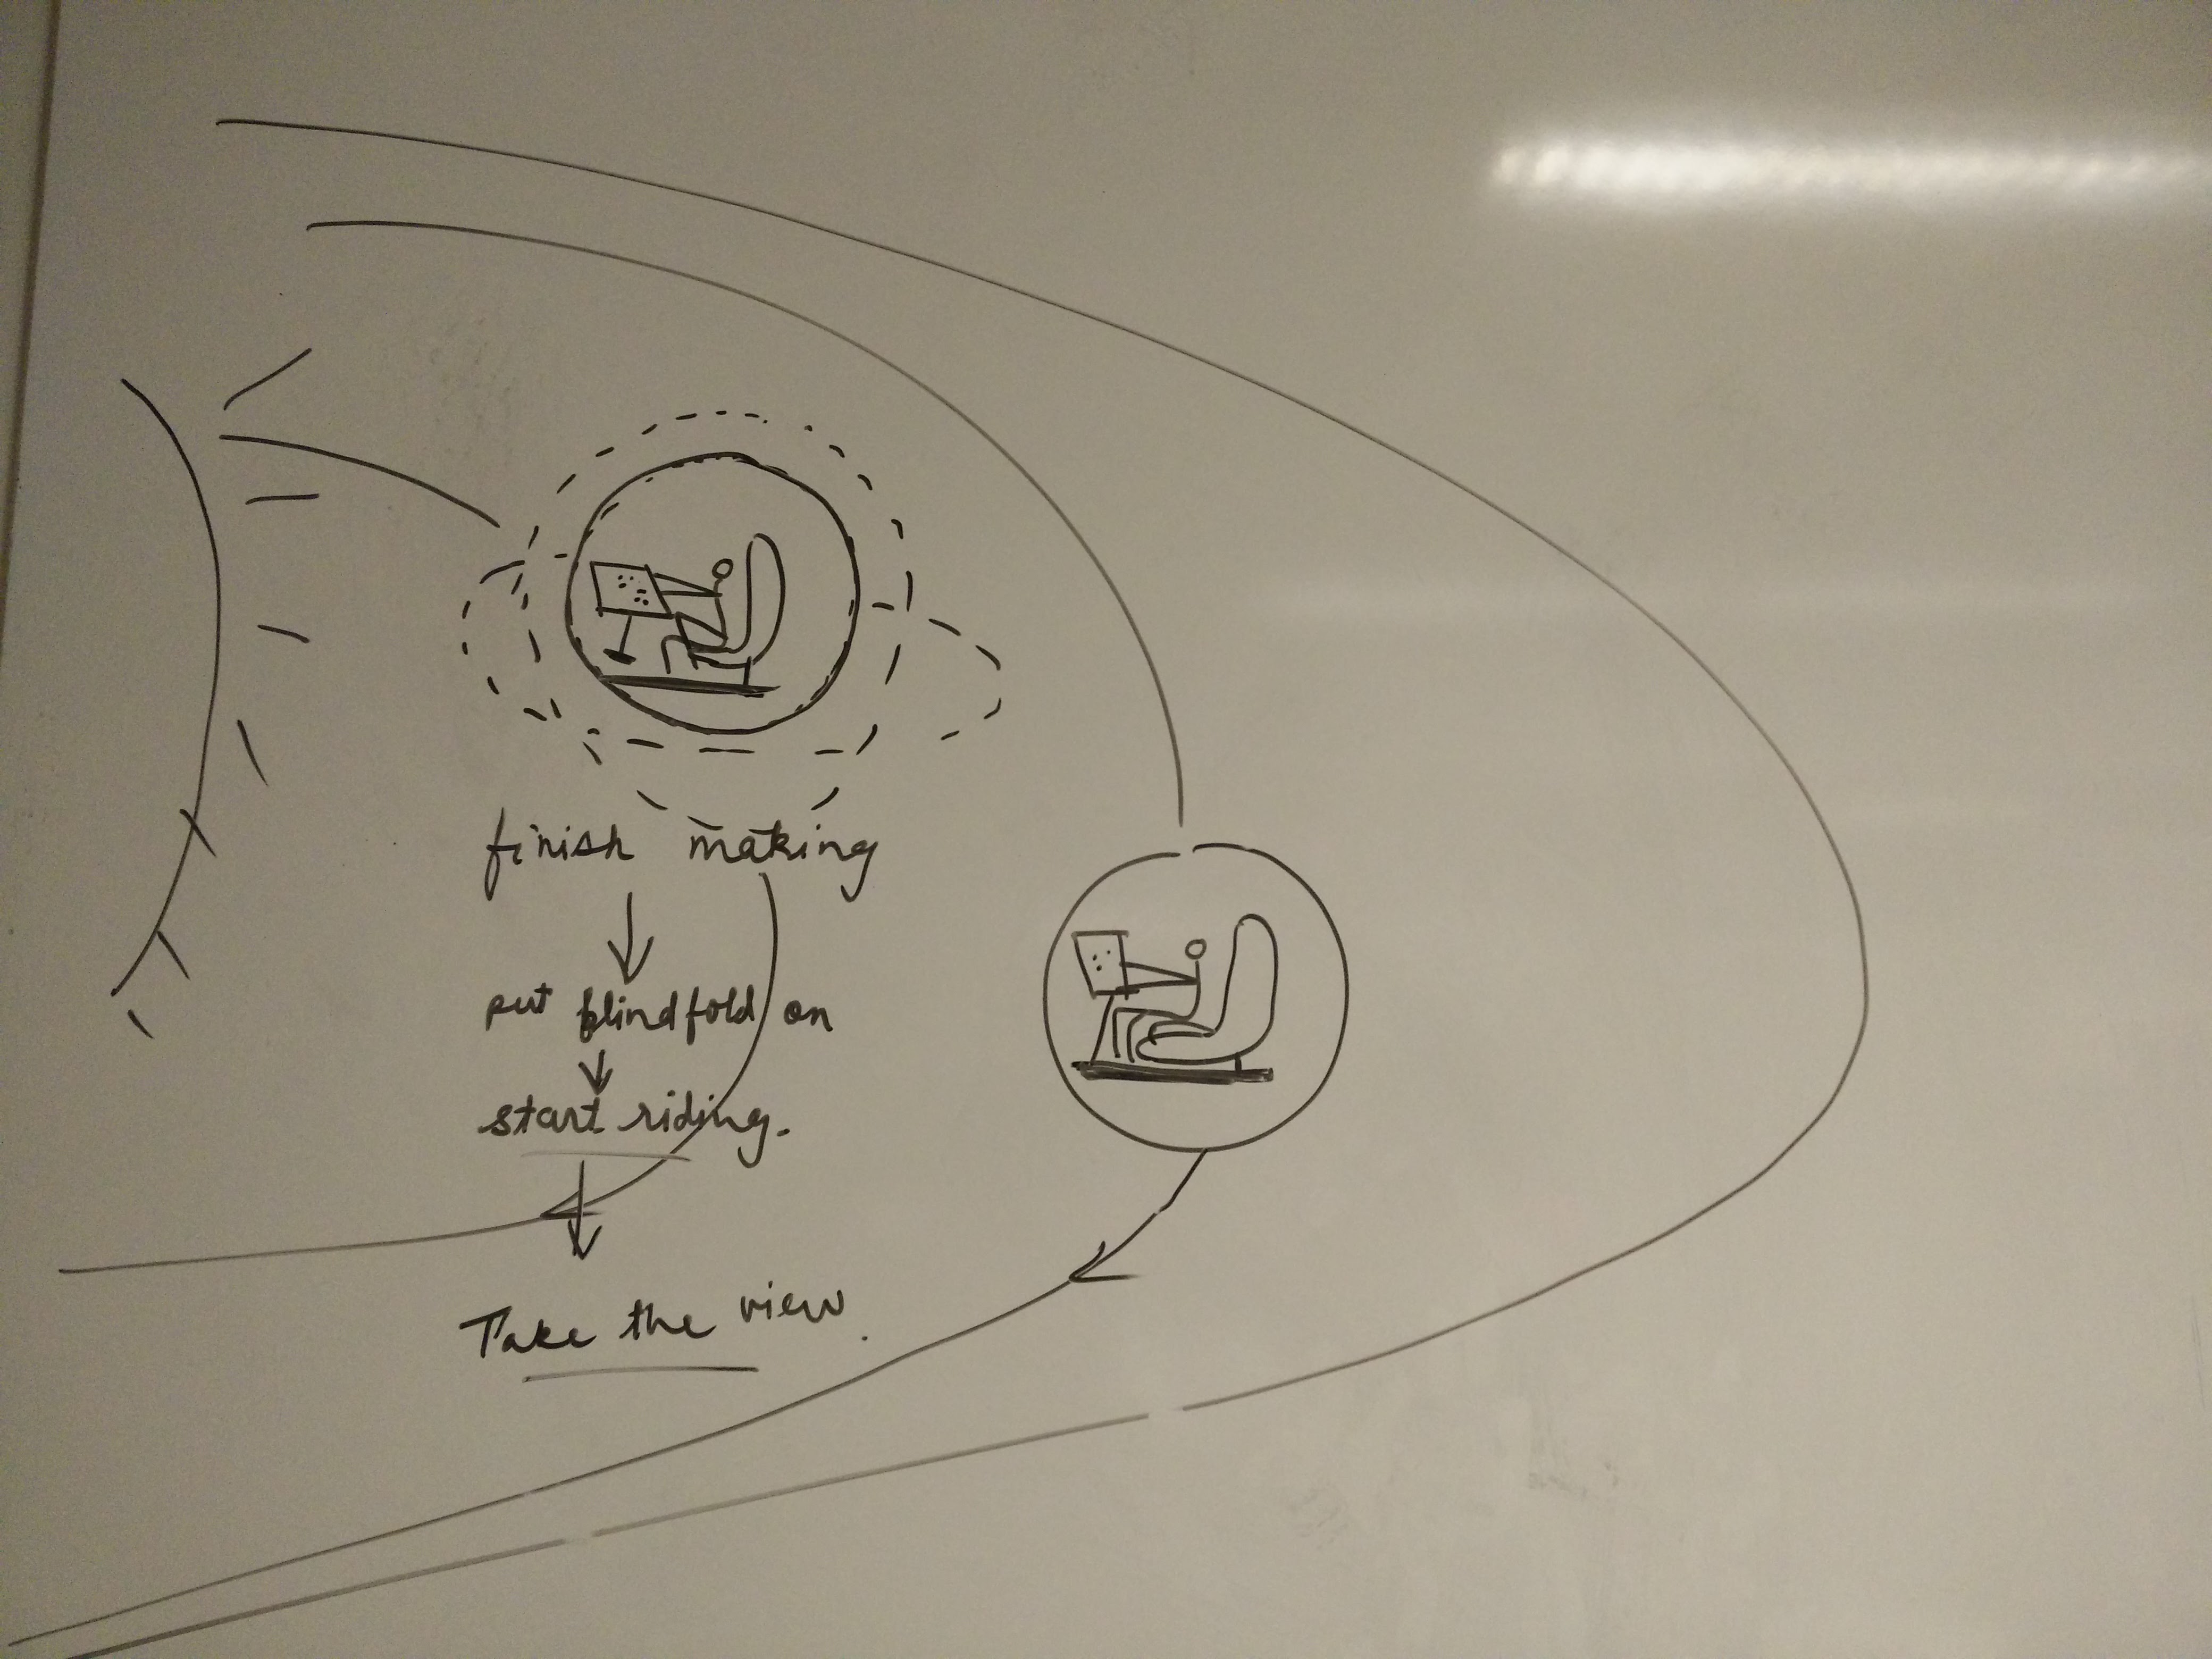 finish making
put blindfold on
start riding.
Take the view.